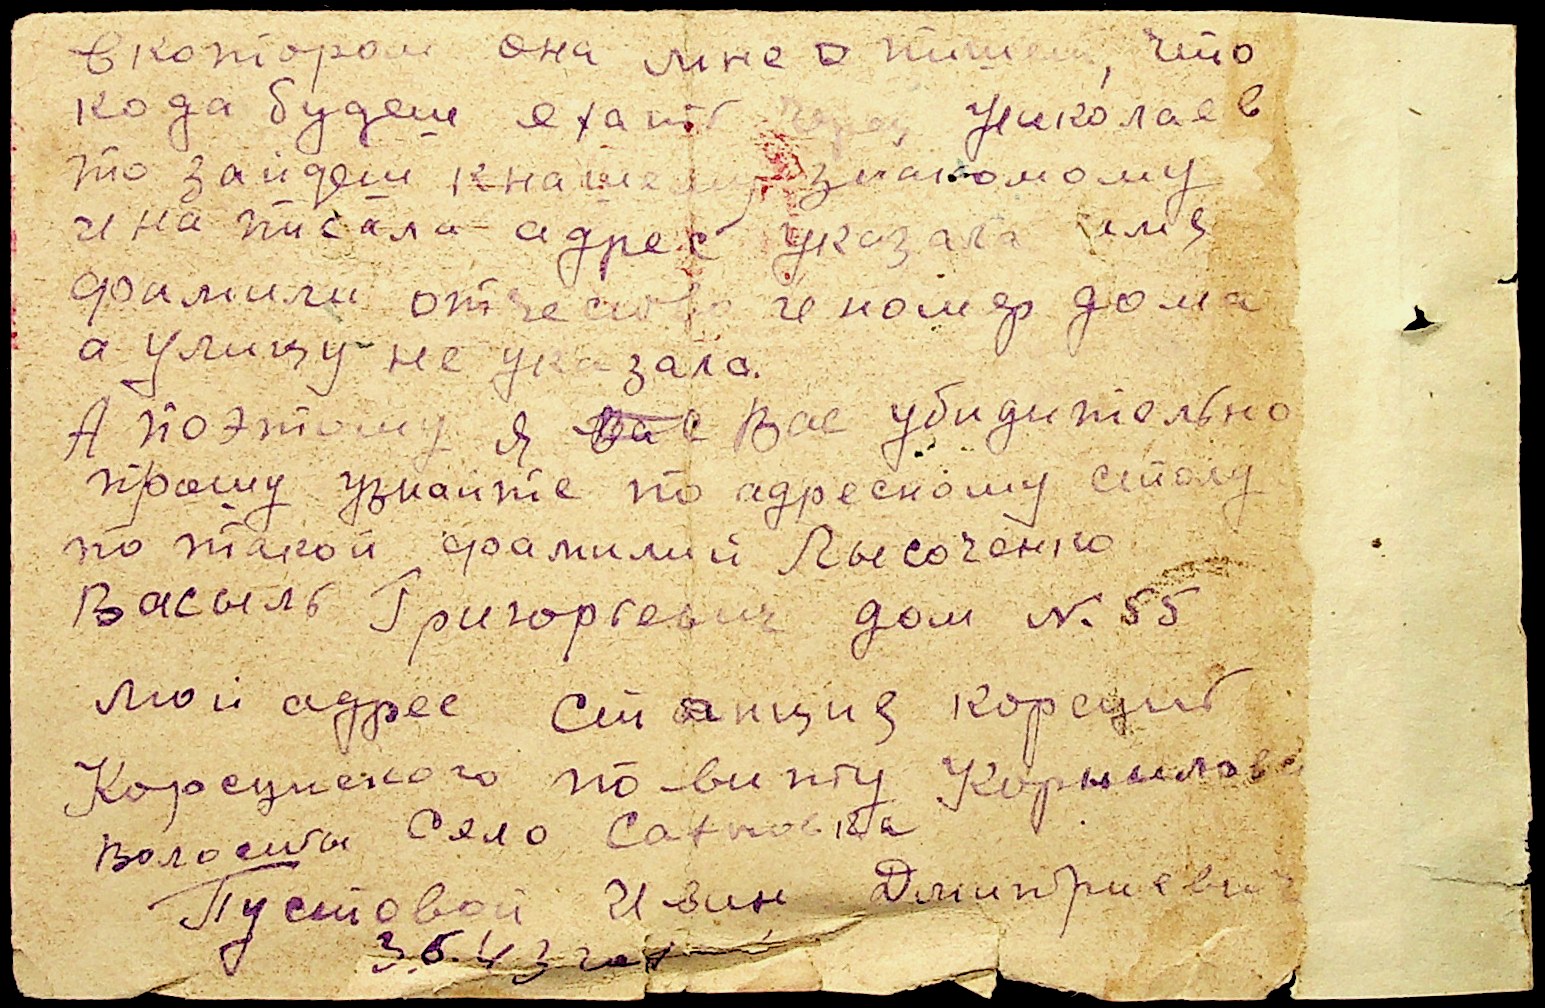 в котором она мне пишет, что
кода будеш ехать через Николаев
то зайдеш к нашему знакомому
и написала адрес указала имя
фамили отчество и номер дома
а улицу не указала.
А поэтому я Вас Вас убидительно
прошу узнайте по адресному столу
по такой фамилий Лысоченко
Васыль Григорьевич дом N. 55
Мой адрес станция корсунь
Корсунского повиту Корнилов
волости Село Сахновка
Пустовой Иван Дмитриевич
3.5.43 год